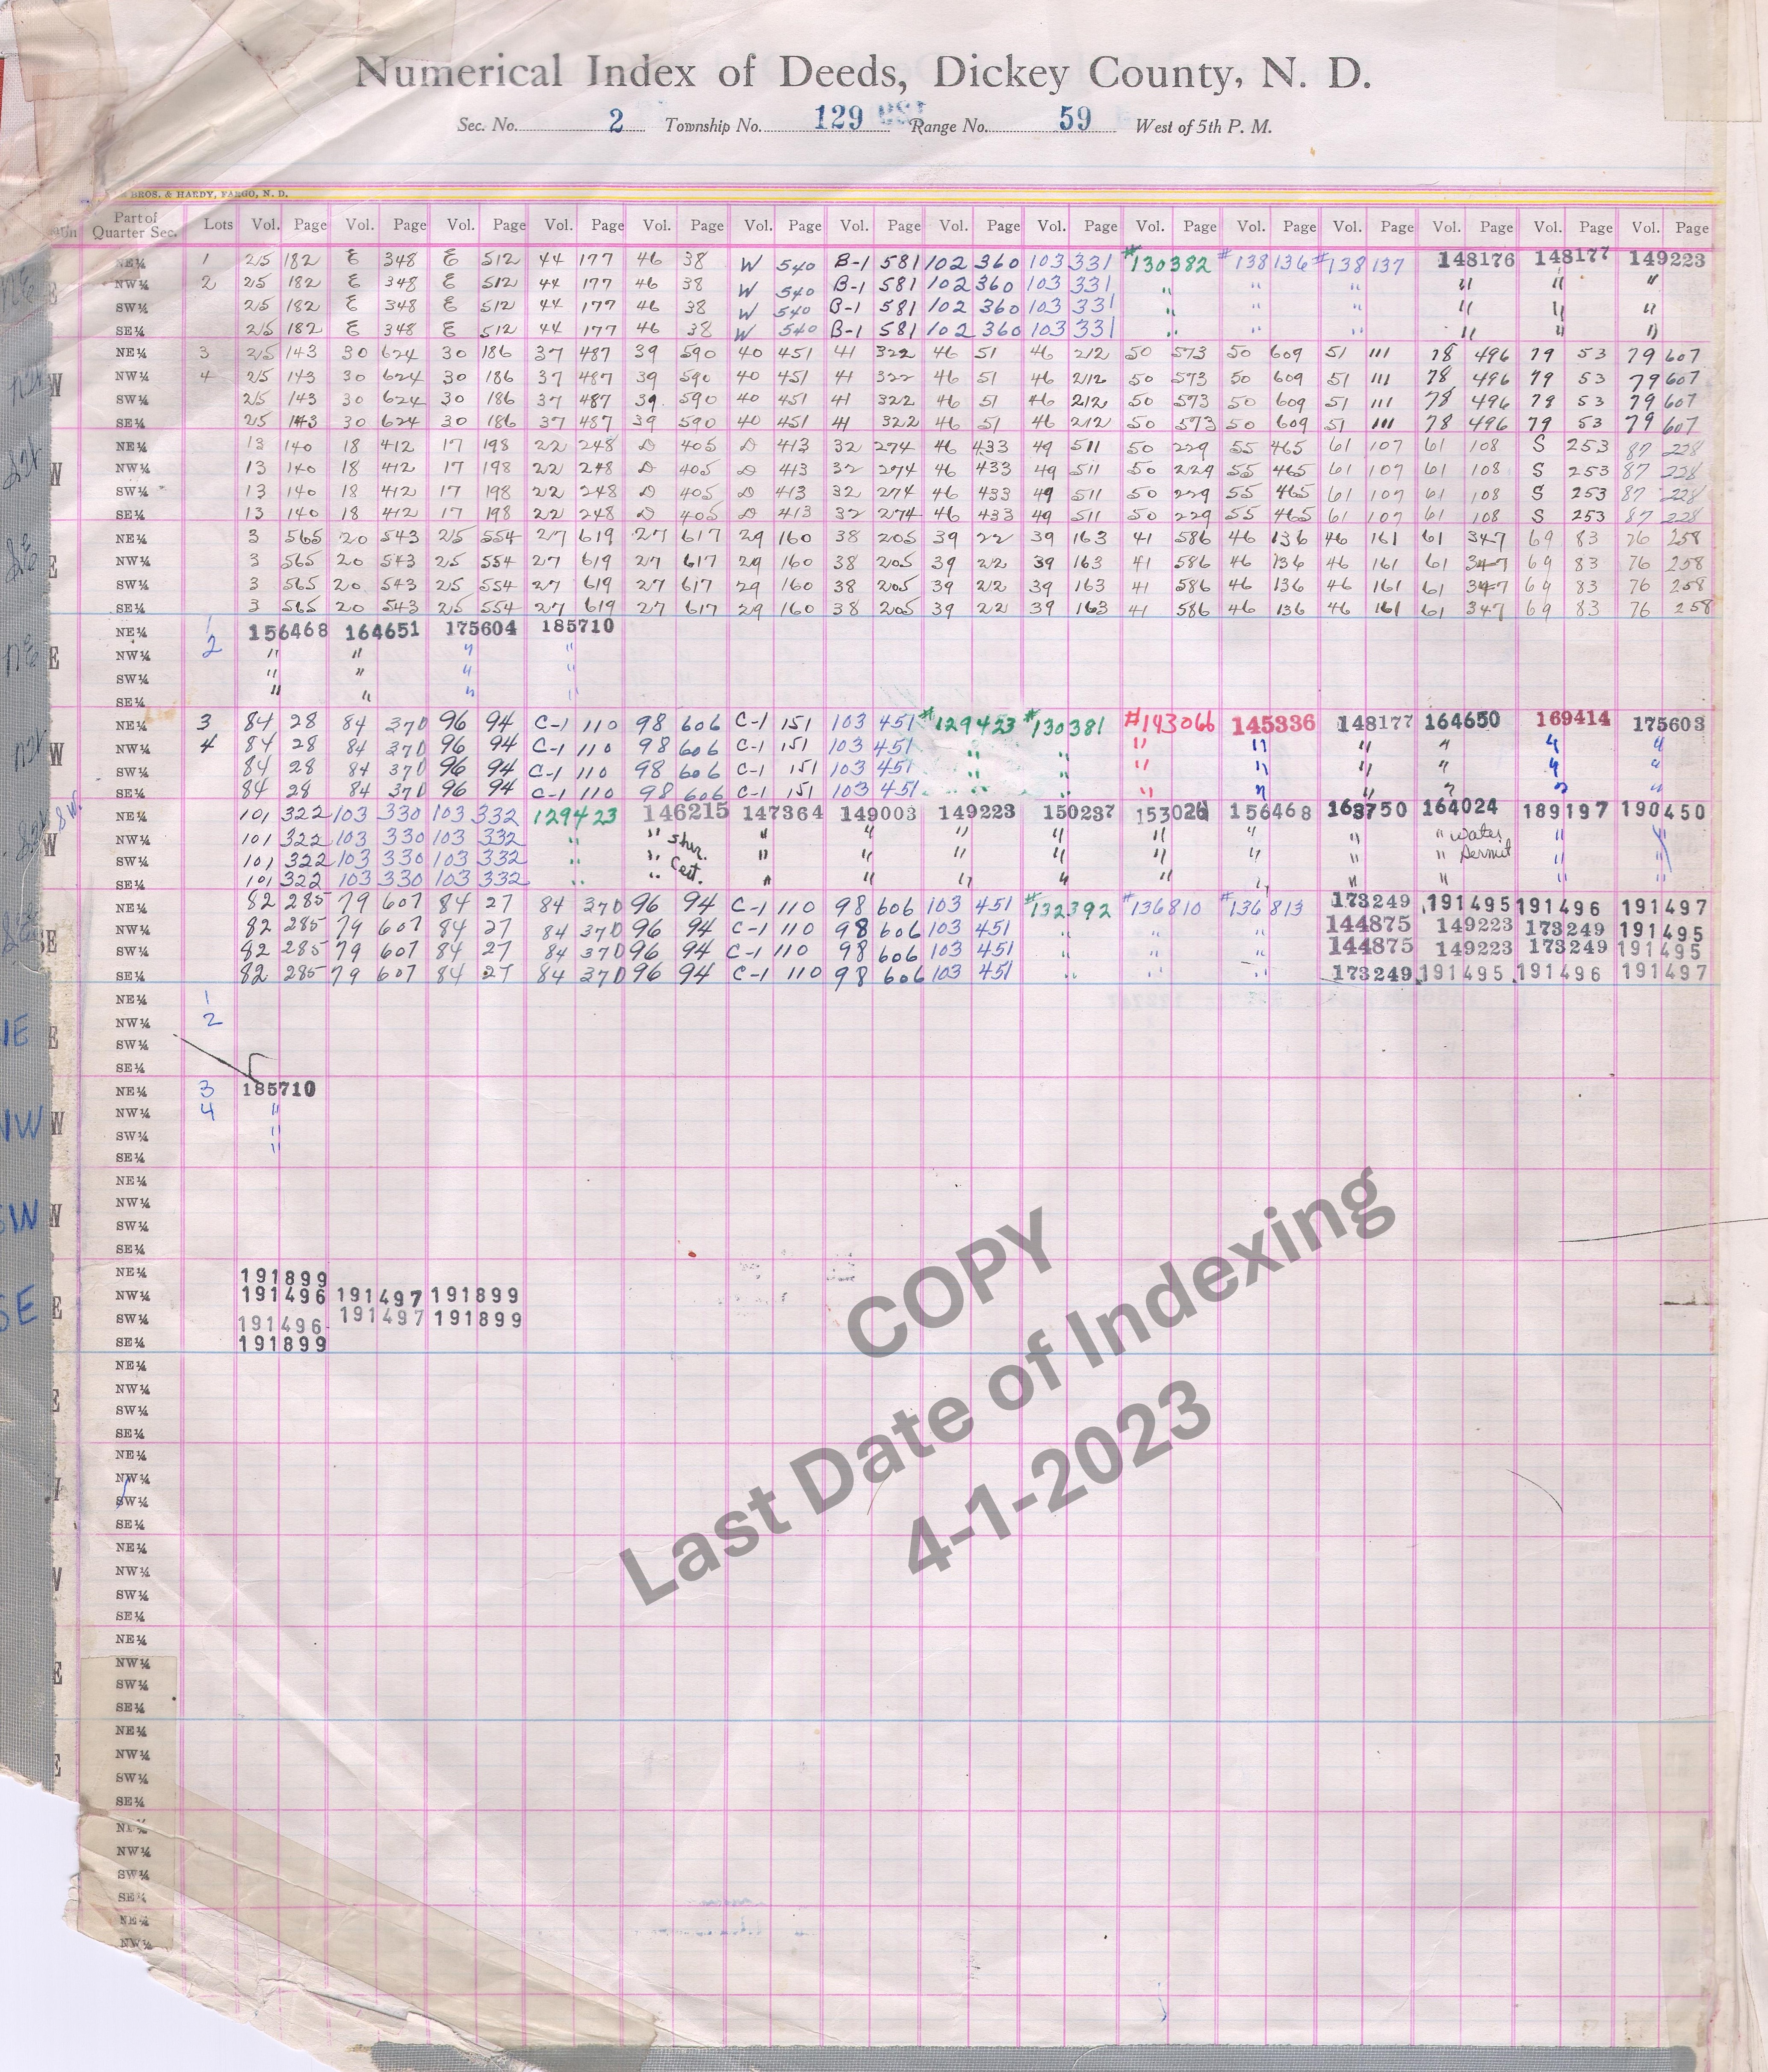 Numerical Index of Deeds, Dickey County, N. D.
Sec. No. 2 Township No. 129 Range No. 59 West of 5th P. M.
BROS. & HARDY, FARGO, N. D.
Part of Quarter Sec. Lots Vol. Page Vol. Page Vol. Page Vol. Page Vol. Page Vol. Page Vol. Page Vol. Page Vol. Page Vol. Page Vol. Page Vol. Page Vol. Page Vol. Page Vol. Page
NE¼ 1 25 182 E 348 E 512 44 177 46 38 W 540 B-1 581 102 360 103 331 #130382 #138136 #138137 148176 148177 149223
NW¼ 2 25 182 E 348 E 512 44 177 46 38 W 540 B-1 581 102 360 103 331 " " " " " "
SW¼ 25 182 E 348 E 512 44 177 46 38 W 540 B-1 581 102 360 103 331 " " " " " "
SE¼ 25 182 E 348 E 512 44 177 46 38 W 540 B-1 581 102 360 103 331 " " " " " "
NE¼ 3 25 143 30 624 30 186 37 487 39 590 40 451 41 322 46 51 46 212 50 573 50 609 51 111 78 496 79 53 79 607
NW¼ 4 25 143 30 624 30 186 37 487 39 590 40 451 41 322 46 51 46 212 50 573 50 609 51 111 78 496 79 53 79 607
SW¼ 25 143 30 624 30 186 37 487 39 590 40 451 41 322 46 51 46 212 50 573 50 609 51 111 78 496 79 53 79 607
SE¼ 25 143 30 624 30 186 37 487 39 590 40 451 41 322 46 51 46 212 50 573 50 609 51 111 78 496 79 53 79 607
NE¼ 13 140 18 412 17 198 22 248 D 405 D 413 32 274 46 433 49 511 50 229 55 465 61 107 61 108 S 253 87 228
NW¼ 13 140 18 412 17 198 22 248 D 405 D 413 32 274 46 433 49 511 50 229 55 465 61 107 61 108 S 253 87 228
SW¼ 13 140 18 412 17 198 22 248 D 405 D 413 32 274 46 433 49 511 50 229 55 465 61 107 61 108 S 253 87 228
SE¼ 13 140 18 412 17 198 22 248 D 405 D 413 32 274 46 433 49 511 50 229 55 465 61 107 61 108 S 253 87 228
NE¼ 3 565 20 543 25 554 27 619 27 617 29 160 38 205 39 22 39 163 41 586 46 136 46 161 61 347 69 83 76 258
NW¼ 3 565 20 543 25 554 27 619 27 617 29 160 38 205 39 22 39 163 41 586 46 136 46 161 61 347 69 83 76 258
SW¼ 3 565 20 543 25 554 27 619 27 617 29 160 38 205 39 22 39 163 41 586 46 136 46 161 61 347 69 83 76 258
SE¼ 3 565 20 543 25 554 27 619 27 617 29 160 38 205 39 22 39 163 41 586 46 136 46 161 61 347 69 83 76 258
NE¼ 1 156468 164651 175604 185710
NW¼ 2 " " " "
SW¼ " " " "
SE¼ " " " "
NE¼ 3 84 28 84 370 96 94 C-1 110 98 606 C-1 151 103 451 #129423 #130381 #143066 145336 148177 164650 169414 175603
NW¼ 4 84 28 84 370 96 94 C-1 110 98 606 C-1 151 103 451 " " " " " " " "
SW¼ 84 28 84 370 96 94 C-1 110 98 606 C-1 151 103 451 " " " " " " " "
SE¼ 84 28 84 370 96 94 C-1 110 98 606 C-1 151 103 451 " " " " " " " "
NE¼ 101 322 103 330 103 332 129423 146215 147364 149003 149223 150237 153026 156468 163750 164024 189197 190450
NW¼ 101 322 103 330 103 332 " " Shr. " " " " " " " " Water " "
SW¼ 101 322 103 330 103 332 " " Cert. " " " " " " " " Permit " "
SE¼ 101 322 103 330 103 332 " " " " " " " " " " " "
NE¼ 82 285 79 607 84 27 84 370 96 94 C-1 110 98 606 103 451 #132392 #136810 #136813 173249 191495 191496 191497
NW¼ 82 285 79 607 84 27 84 370 96 94 C-1 110 98 606 103 451 " " " 144875 149223 173249 191495
SW¼ 82 285 79 607 84 27 84 370 96 94 C-1 110 98 606 103 451 " " " 144875 149223 173249 191495
SE¼ 82 285 79 607 84 27 84 370 96 94 C-1 110 98 606 103 451 " " " 173249 191495 191496 191497
NE¼ 1
NW¼ 2
SW¼
SE¼
NE¼ 3 185710
NW¼ 4 "
SW¼ "
SE¼ "
NE¼
NW¼
SW¼
SE¼
NE¼ 191899
NW¼ 191496 191497 191899
SW¼ 191496 191497 191899
SE¼ 191899
NE¼
NW¼
SW¼
SE¼
NE¼
NW¼
SW¼
SE¼
NE¼
NW¼
SW¼
SE¼
NE¼
NW¼
SW¼
SE¼
NE¼
NW¼
SW¼
SE¼
NE¼
NW¼
SW¼
SE¼
NE¼
NW¼
COPY
Last Date of Indexing
4-1-2023